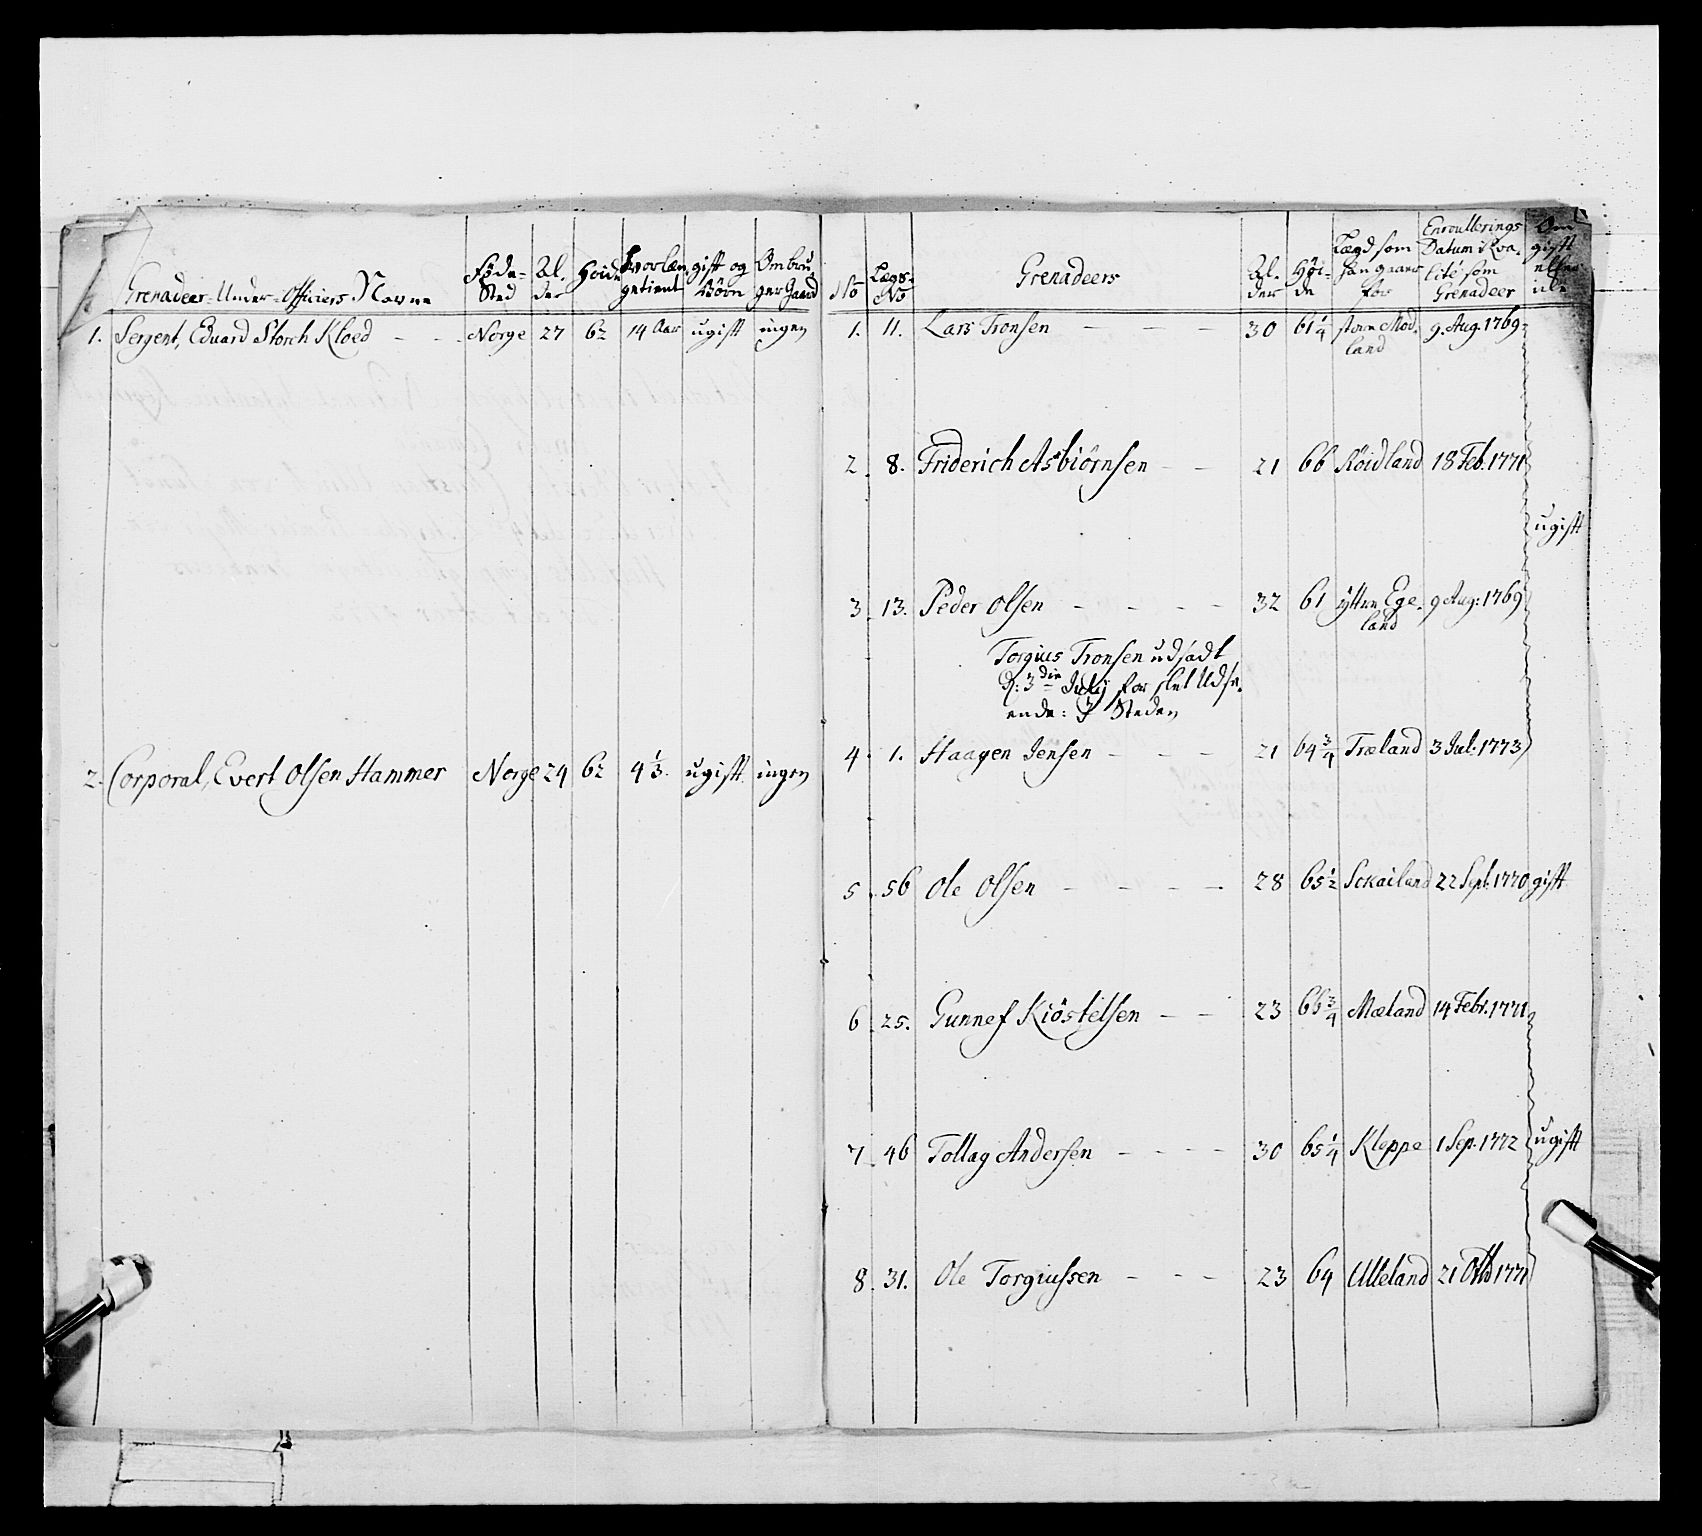 Grenadeer-Under-Officiers Navne | Føde-Sted | Al-der | Høide | hvorlæn getient | gift og Børn | Om brugerGaard
1. Sergent, Eduard Storch Kloed - - | Norge | 27 | 62 | 14 Aar | ugift | ingen
2. Corporal, Evert Olsen Hammer | Norge | 24 | 62 | 4 1/3. | ugift | ingen
No | Lægs-No | Grenadeers | Al-der | Høi-de | Lægd som han gaaer for | Enroullerings Datum i Qvalité som Grenadeer | Om gift eller
1. | 11. | Lars Tronsen - - | 30 | 61 1/4 | store Mod-land | 9. Aug. 1769
2. | 8. | Friderich Asbiörnsen - - | 21 | 66 | Röidland | 18 Feb. 1771
ugift
3. | 13. | Peder Olsen - - - - | 32 | 61 | ÿttre Ege-land | 9 Aug: 1769
Torgius Tronsen udsadt
d: 3die Julÿ for slet Udse-
ende: I Steden
4. | 1. | Haagen Jensen - - - | 21 | 64 3/4 | Træland | 3 Jul: 1773
5. | 56 | Ole Olsen - - - - | 28 | 65 1/2 | Sckailand | 22 Sept: 1770 | gift
6. | 25. | Gunnef Kiöstelsen - - | 23 | 66 3/4 | Mæland | 14 Febr. 1771
7. | 46 | Tollag Andersen - - - - | 30 | 65 1/4 | Kleppe | 1 Sep. 1772 | ugift
8. | 31. | Ole Torgiussen - - - | 23 | 64 | Ulleland | 21 Octb 1771